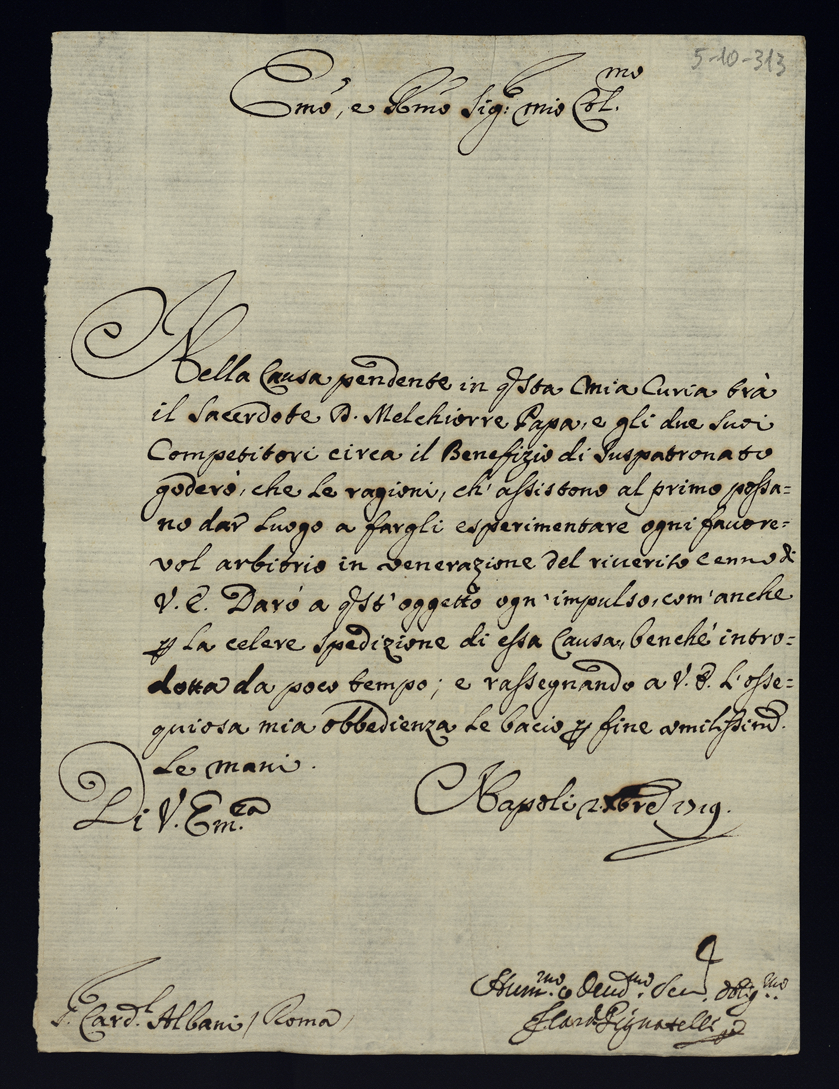 5-10-313
Emo, e Rmo Sig:re mio Col.mo
Nella Causa pendente in q̄sta mia Curia trà
il Sacerdote D. Melchiorre Papa, e gli due suoi
Competitori circa il Benefizio di Juspatronato
goderò, che le ragioni, ch'assistono al primo possa=
no dar luogo a fargli esperimentare ogni favore=
vol arbitrio in venerazione del riverito cenno di
V. E. Darò a q̄st'oggetto ogn'impulso, com'anche
ꝑ la celere spedizione di essa Causa, benché intro=
dotta da poco tempo; e rassegnando a V. E. l'osse=
quiosa mia obbedienza le bacio ꝑ fine umilissimo.
le mani.
Di V. Em.za
Napoli bre 1719.
S. Card.l Albani / Roma /
Hum.mo e Deud.mo Ser. oblig.mo
F. Card. Pignatelli